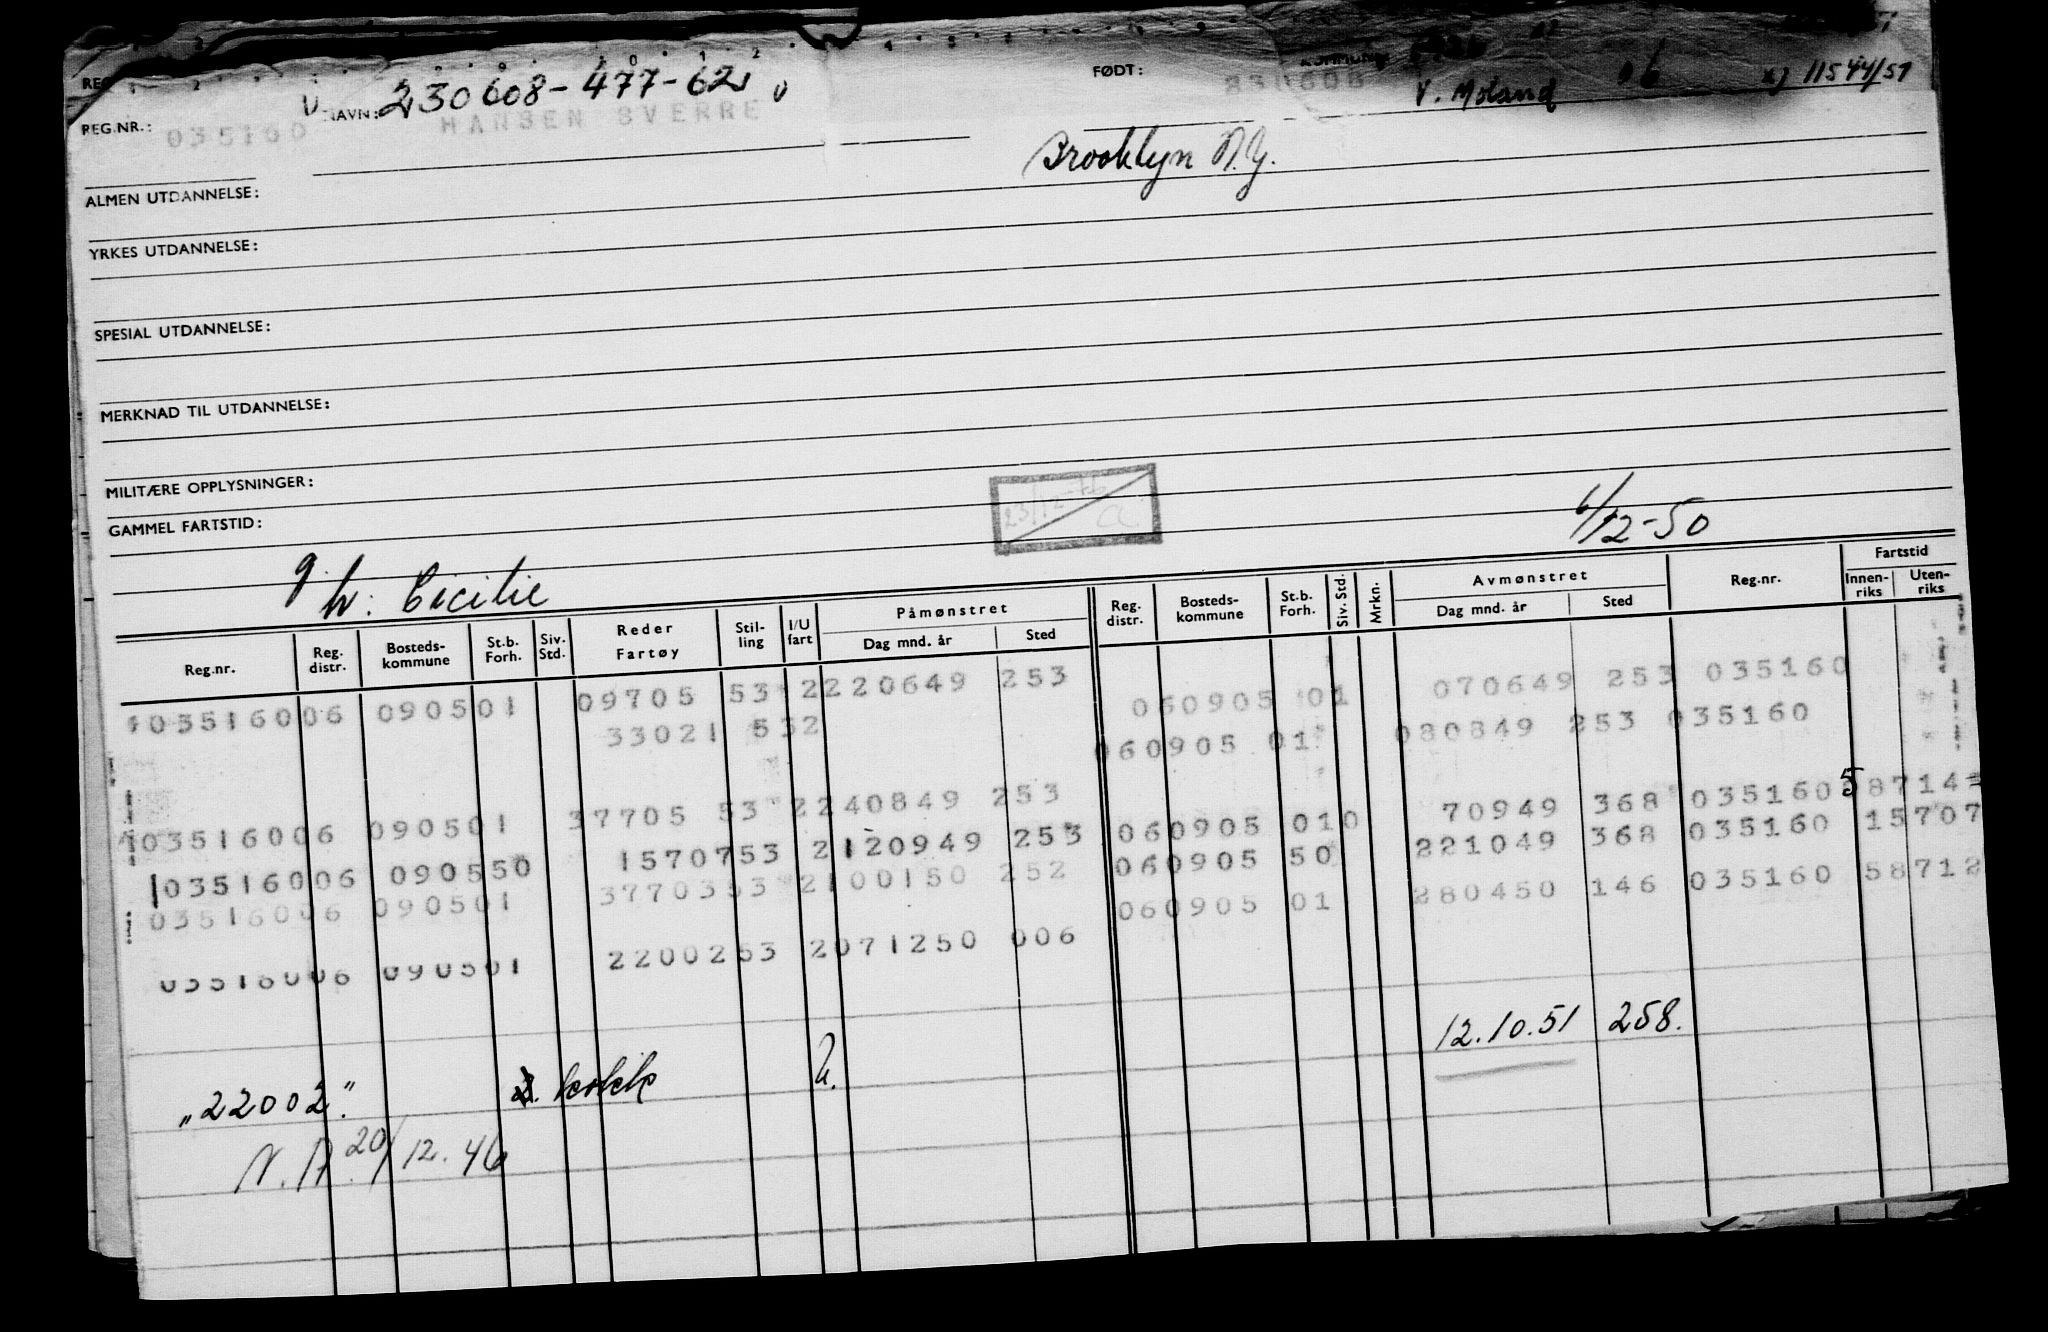 FØDT:
V. Moland 06 11544/51
NAVN: 230608-477-62
REG.NR.: 035160 HANSEN SVERRE 230608
Brooklyn N.Y.
ALMEN UTDANNELSE:
YRKES UTDANNELSE:
SPESIAL UTDANNELSE:
MERKNAD TIL UTDANNELSE:
MILITÆRE OPPLYSNINGER:
23/12-76 CL
GAMMEL FARTSTID:
6/12-50
g. h: Cicilie
Reg.nr. Reg. distr. Bosteds-kommune St.b. Forh. Siv. Std. Reder Fartøy Stil-ling I/U fart Påmønstret Dag mnd. år Sted Reg. distr. Bosteds-kommune St.b. Forh. Siv. Std. Mrkn. Avmønstret Dag mnd. år Sted Reg.nr. Fartstid Innen-riks Uten-riks
03516006 090501 09705 53 2220649 253 060905 01 070649 253 035160
33021 532 060905 01 080849 253 035160
03516006 090501 37705 53 2240849 253 060905 010 70949 368 035160 58714
103516006 090550 1570753 2120949 253 060905 50 221049 368 035160 15707
03516006 090501 3770353 2100150 252 060905 01 280450 146 035160 58712
03516006 090501 2200253 2071250 006
12.10.51 258.
„22002" 2. kokk U.
N.A. 20/12.46